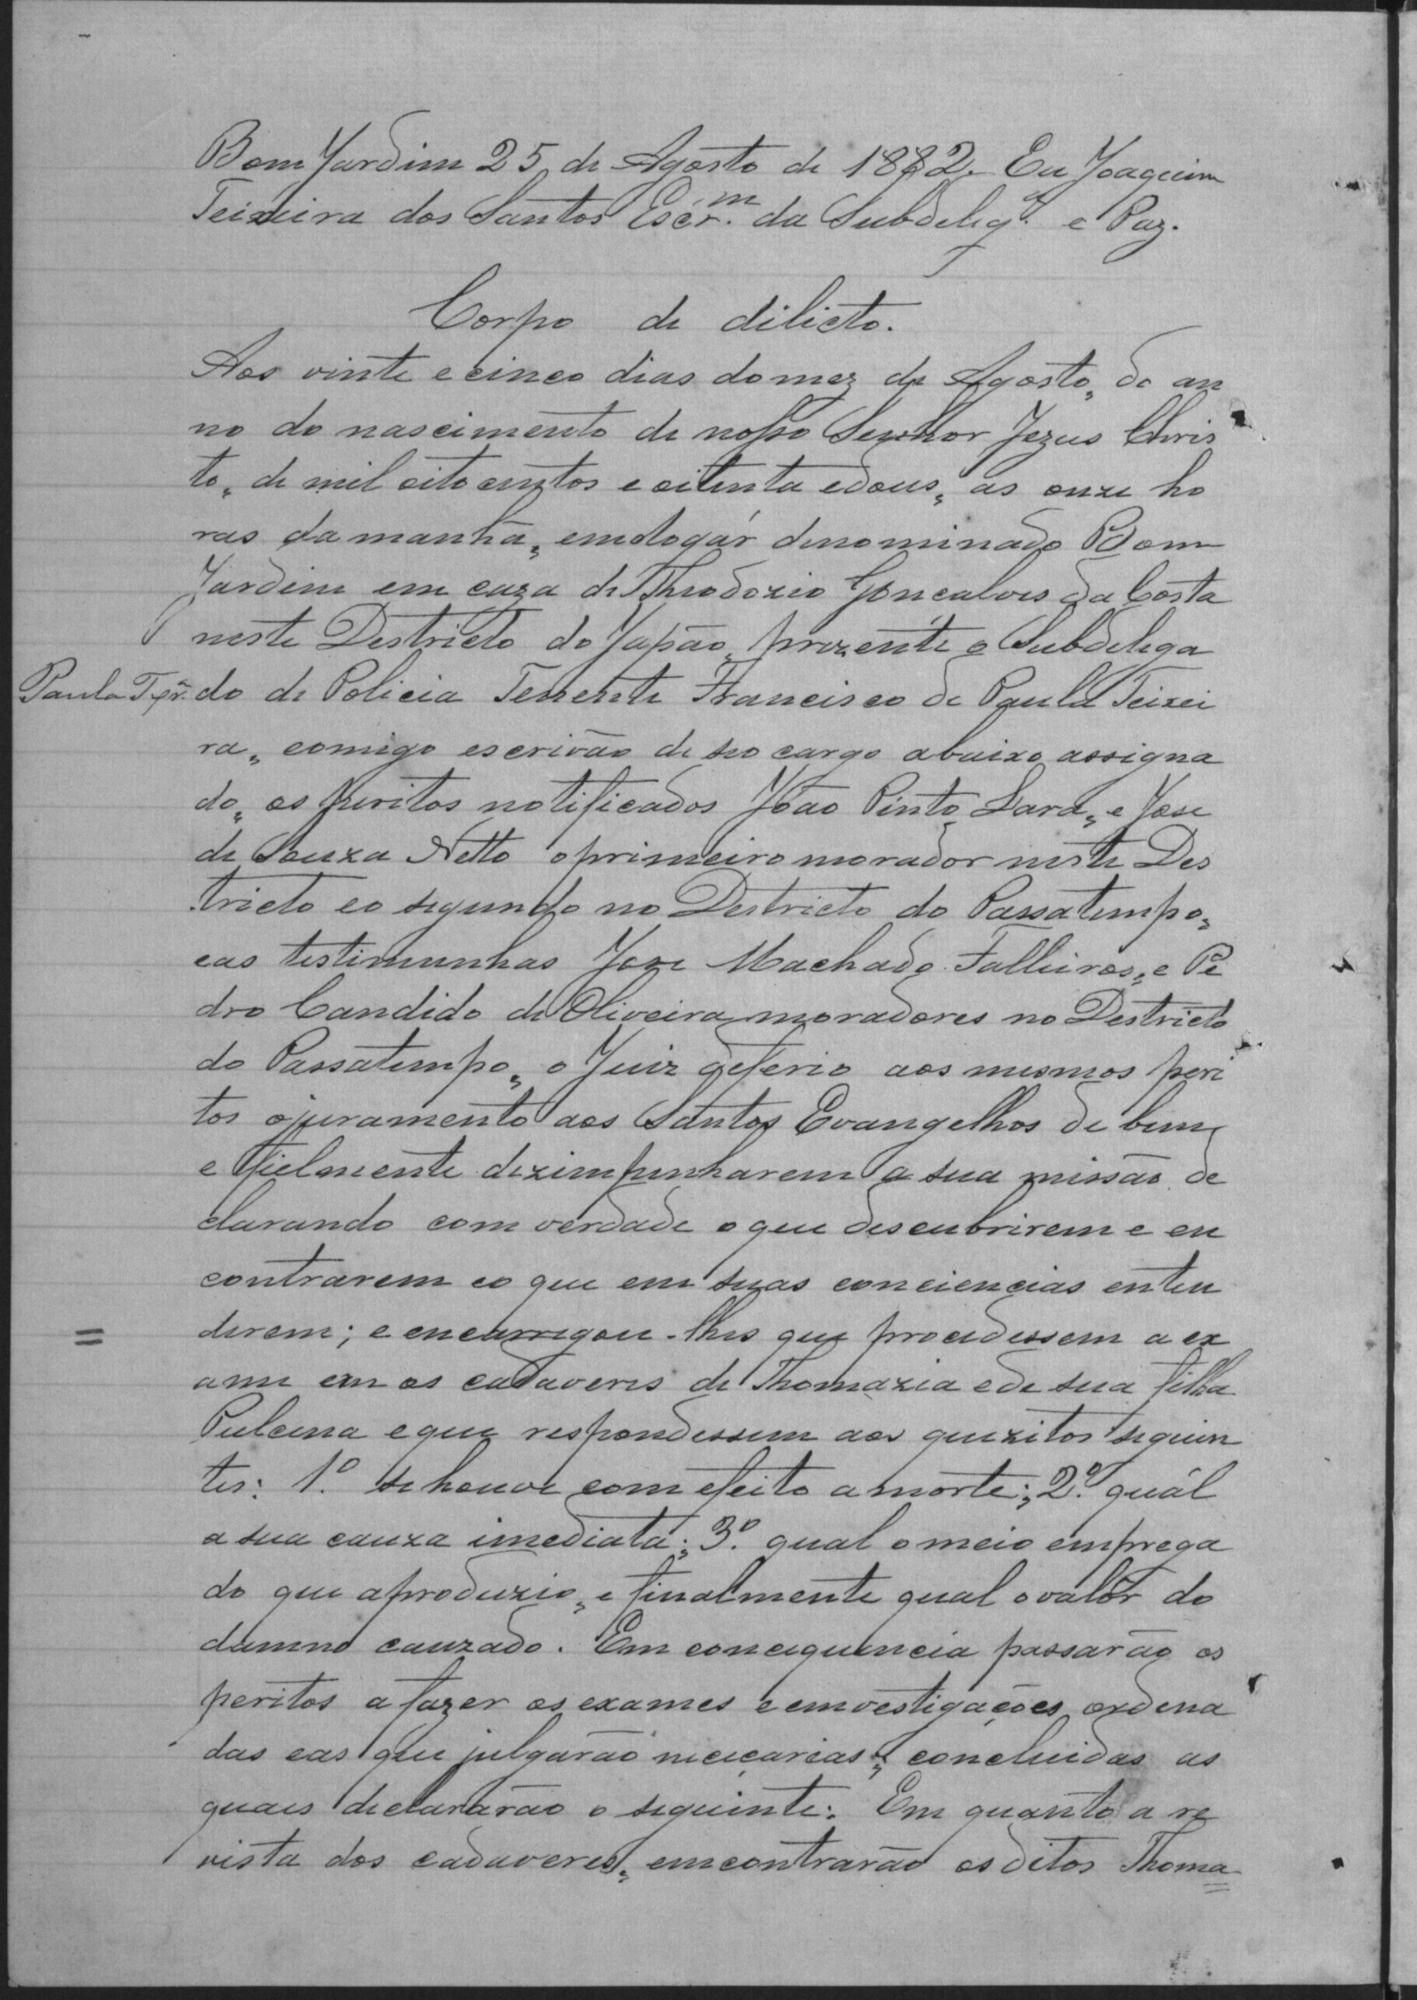 Bom Jardim 25 de Agosto de 1882. Eu Joaquim
Teixeira dos Santos Escr.m da Subdeleg.a e Paz.
Corpo de dilicto.
Aos vinte e cinco dias do mez de Agosto, do an
no do nascimento de nosso Senhor Jezus Chris
to, de mil oito centos e oitenta e dous, as onze ho
ras da manhã, em o logár denominado Bom
Jardim em caza de Theodozio Gonçalves da Costa
neste Destricto do Japão, prezente o Subdelega
Paula Txr.a do de Policia Tenente Francisco de Paula Teixei
ra, comigo escrivão de seo cargo abaixo assigna
do, os peritos notificados João Pinto Lara, e Jose
de Souza Netto o primeiro morador neste Des
tricto e o segundo no Destricto do Passatempo,
e as testimunhas Joze Machado Falleiros, e Pe
dro Candido de Oliveira moradores no Destricto
do Passatempo, o Juiz deferio aos mesmos peri
tos o juramento aos Santos Evangelhos de bem
e fielmente dezimpenharem a sua missão de
clarando com verdade o que descubrirem e en
contrarem e o que em suas conciencias enten
derem; e encarregou-lhes que procedessem a ex
ame em os cadaveres de Thomazia e de sua filha
Pulcena e que respondessem aos quezitos seguin
tes: 1.º se houve com efeito a morte; 2.º quál
a sua cauza imediata; 3.º qual o meio emprega
do que a produzio, e finalmente qual o valor do
damno cauzado. Em concequencia passarão os
peritos a fazer os exames e emvestigações ordena
das e as que julgarão nececarias; concluidas as
quaes declararão o seguinte: Em quanto a re
vista dos cadaveres, emcontrarão os ditos Thoma